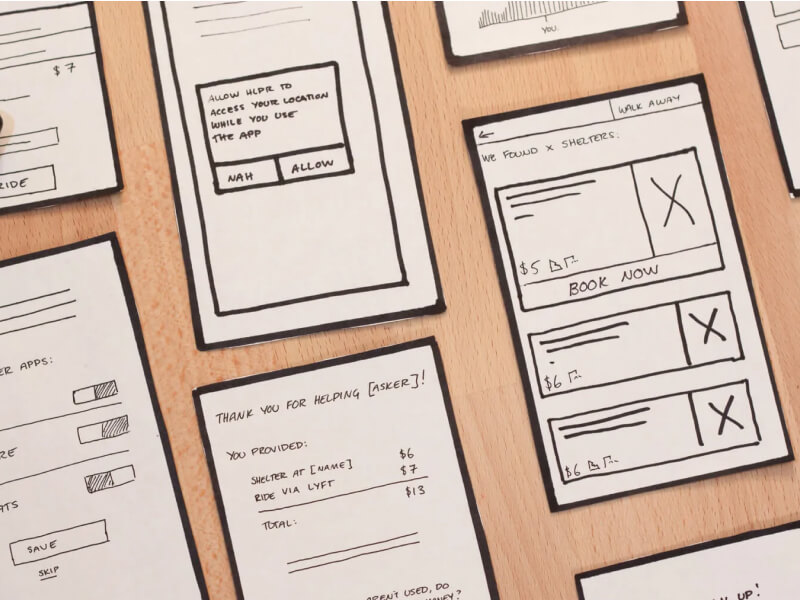 $7
RIDE
ALLOW HLPR TO
ACCESS YOUR LOCATION
WHILE YOU USE
THE APP
NAH
ALLOW
YOU
WALK AWAY
WE FOUND X SHELTERS:
$5
BOOK NOW
$6
$6
ER APPS:
RE
ATS
SAVE
SKIP
THANK YOU FOR HELPING [ASKER]!
YOU PROVIDED:
SHELTER AT [NAME] $6
RIDE VIA LYFT $7
$13
TOTAL:
AREN'T USED, DO
UP!